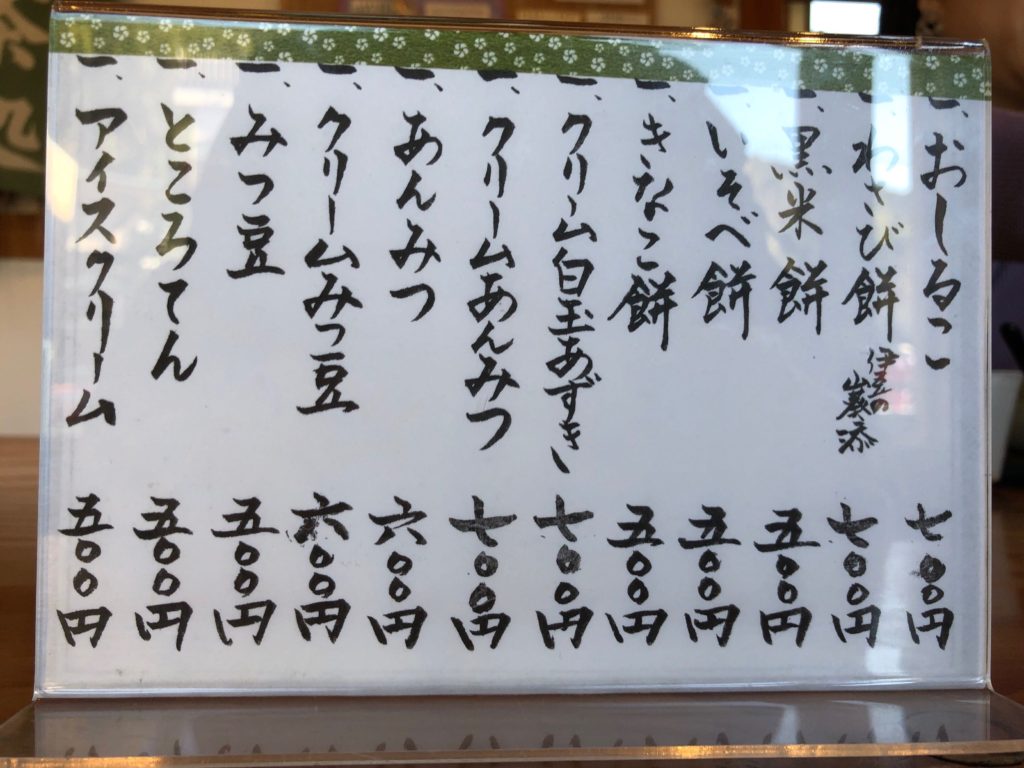 一、おしるこ 七〇〇円
一、わさび餅 伊豆の山葵添 七〇〇円
一、黒米餅 五〇〇円
一、いそべ餅 五〇〇円
一、きなこ餅 五〇〇円
一、クリーム白玉あずき 七〇〇円
一、クリームあんみつ 七〇〇円
一、あんみつ 六〇〇円
一、クリームみつ豆 六〇〇円
一、みつ豆 五〇〇円
一、ところてん 五〇〇円
一、アイスクリーム 五〇〇円